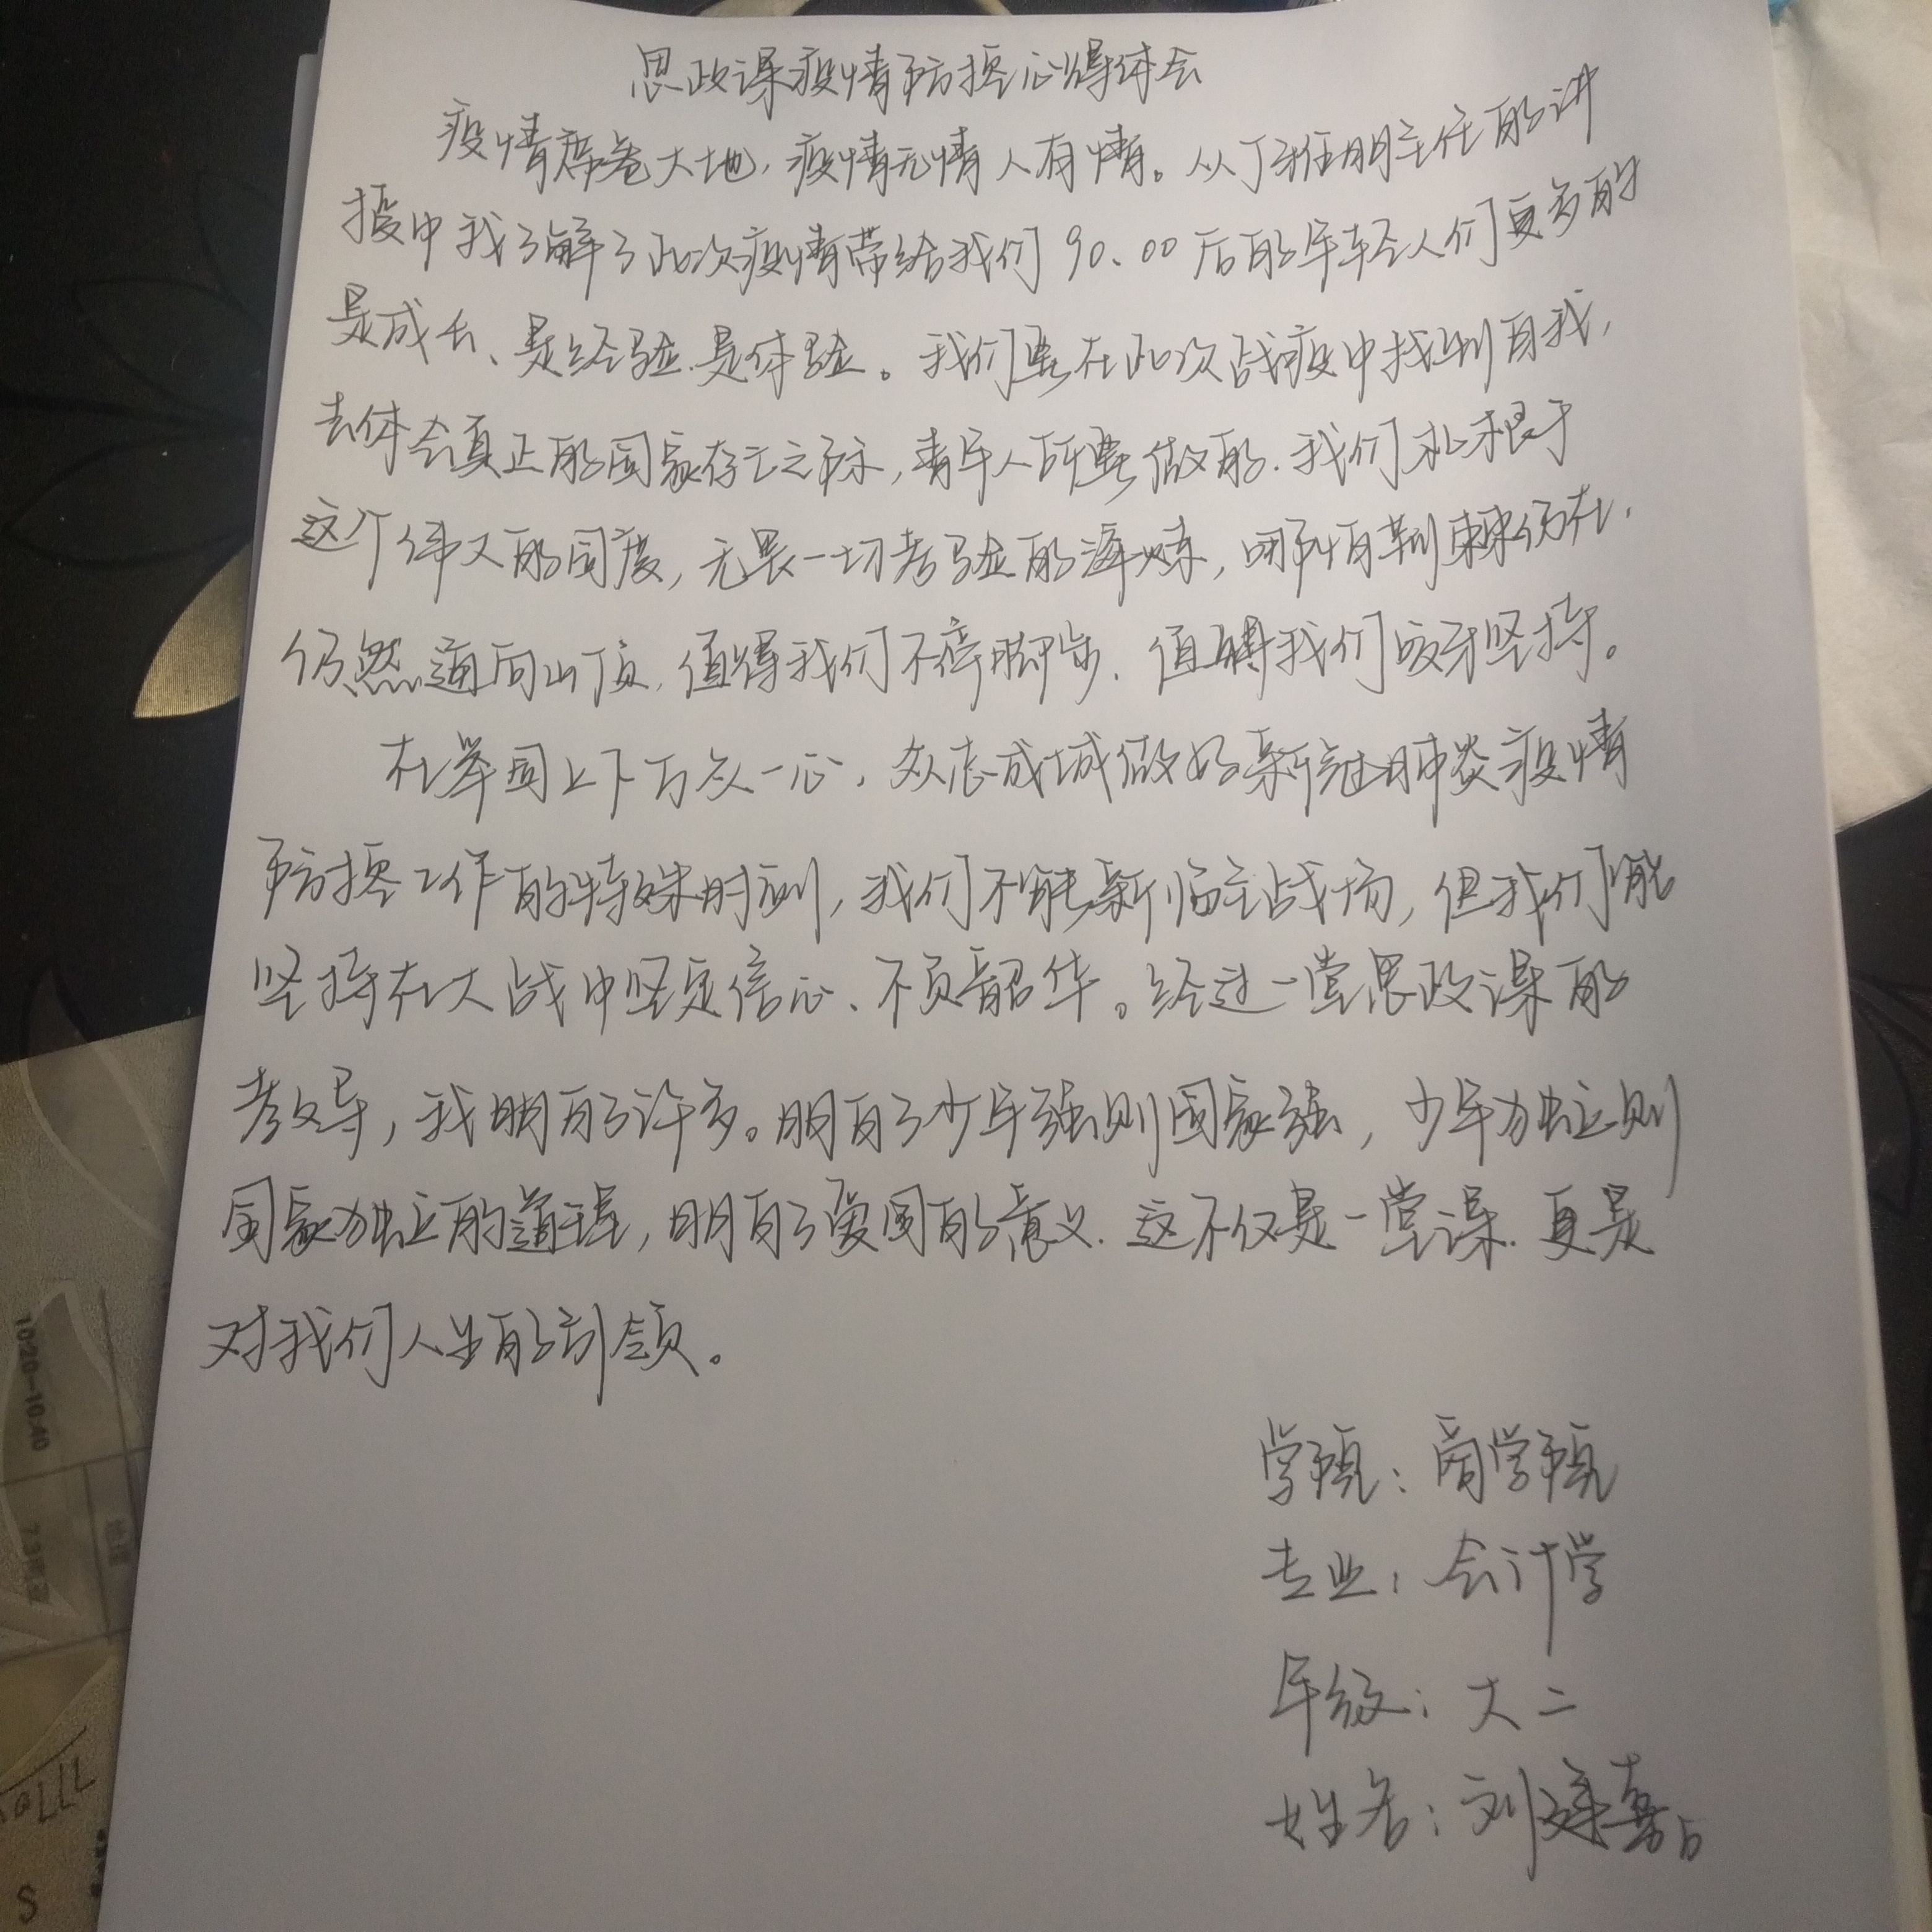 思政课疫情防控心得体会
疫情席卷大地，疫情无情人有情。从丁雅明主任的讲
授中我了解了此次疫情带给我们90、00后的年轻人们更多的
是成长、是经验、是体验。我们要在此次战疫中找到自我，
去体会真正的国家存亡之际，青年人所要做的.我们扎根于
这个伟大的国度，无畏一切考验的淬炼，哪怕荆棘仍在，
仍然通向山顶，值得我们不停脚步，值得我们咬牙坚持。
在举国上下万众一心，众志成城做好新冠肺炎疫情
防控工作的特殊时刻，我们不能亲临主战场，但我们能
坚持在大战中坚定信心、不负韶华。经过一堂思政课的
教导，我明白了许多。明白了少年强则国家强，少年独立则
国家独立的道理，明白了爱国的意义.这不仅是一堂课.更是
对我们人生的引领。
学院：商学院
专业：会计学
年级：大二
姓名：刘
10:20-10:40